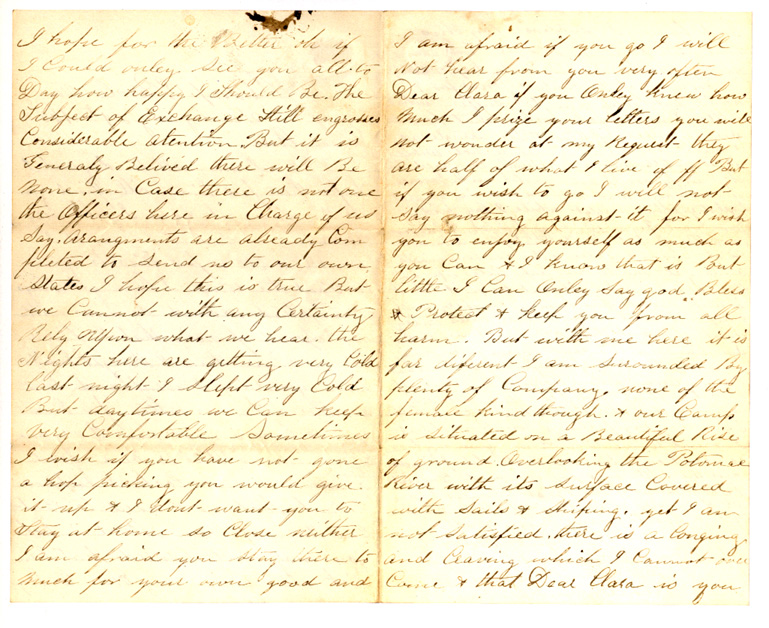 I hope for the Better oh if
I Could onley See you all to
Day how happy I Should Be. The
Subject of Exchange Still engrosses
Considerable atention But it is
Generaly Belived there will Be
None. in Case there is not one
the Officers here in Charge of us
Say. arangments are already Com
pleted to Send us to our own
States I hope this is true But
we Cannot with any Certainty
Rely Upon what we hear. the
Nights here are getting very Cold
last night I Slept very Cold
But daytimes we Can keep
very Comfortable Sometimes
I wish if you have not gone
a hop picking you would give
it up & I dont want you to
Stay at home so Close neither
I am afraid you stay there to
much for your own good and
I am afraid if you go I will
Not hear from you very often
Dear Clara if you Onley knew how
Much I prize your letters you will
not wonder at my Request they
are half of what I live of ff But
if you wish to go I will not
Say nothing against it for I wish
you to enjoy yourself as much as
you Can & I know that is But
little I Can Onley Say god Bless
& Protect & keep you from all
harm. But with me here it is
far diferent I am Surounded By
plenty of Company. none of the
female kind though. & our Camp
is Situated on a Beautiful Rise
of ground Overlooking the Potomac
River with its Surface Covered
with Sails & Shiping. yet I am
not Satisfied. there is a longing
and Craving which I Cannot over
Come & that Dear Clara is you